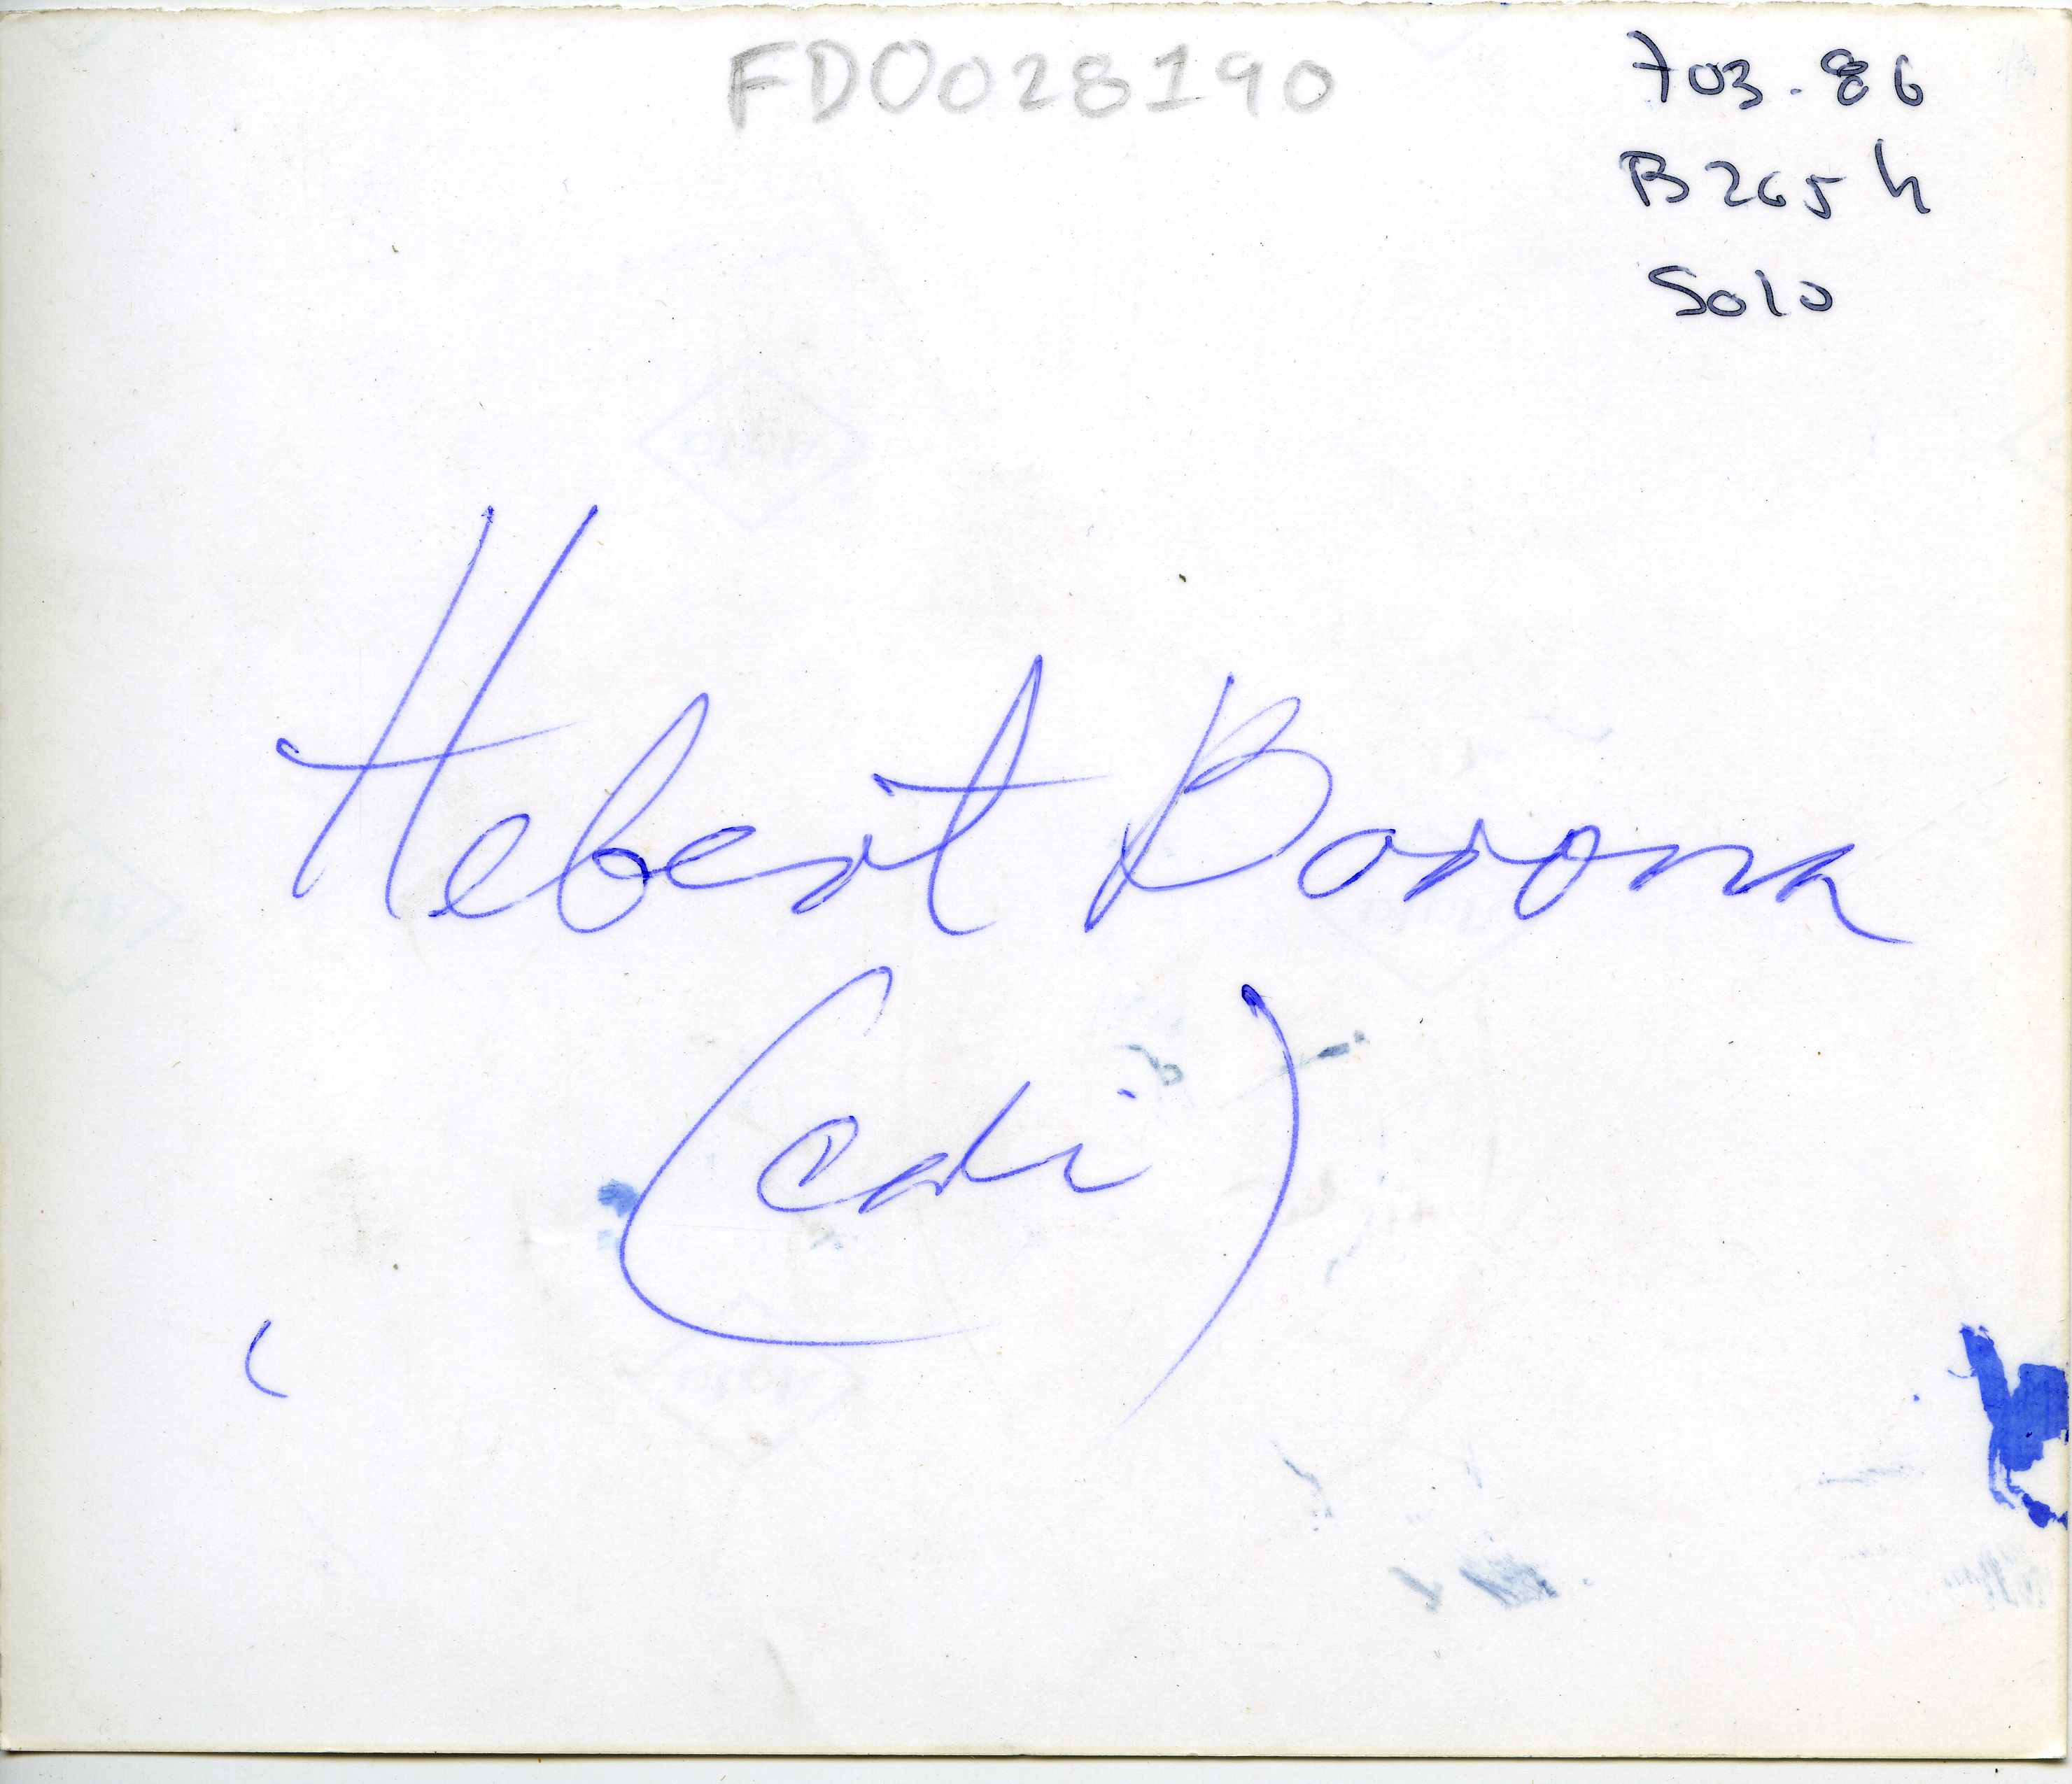 FD0028190
703.86
B265h
Solo
Hebert Barona
(cali)